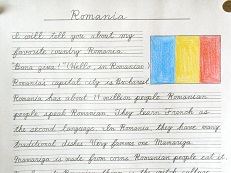 Romania
I will tell you about my
favorite country Romania
"Buna ziua!" (Hello in Romanian)
Romania's capital city is Bucharest
Romania has about 19 million people. Romanian
people speak Romanian. They learn French as
the second language. In Romania, they have many
traditional dishes. Very famous one Mamaliga.
Mamaliga is made from corns Romanian people eat it.